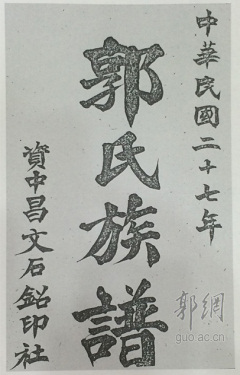 中華民國二十七年
郭氏族譜
資中昌文石鉛印社
郭網
guo.ac.cn